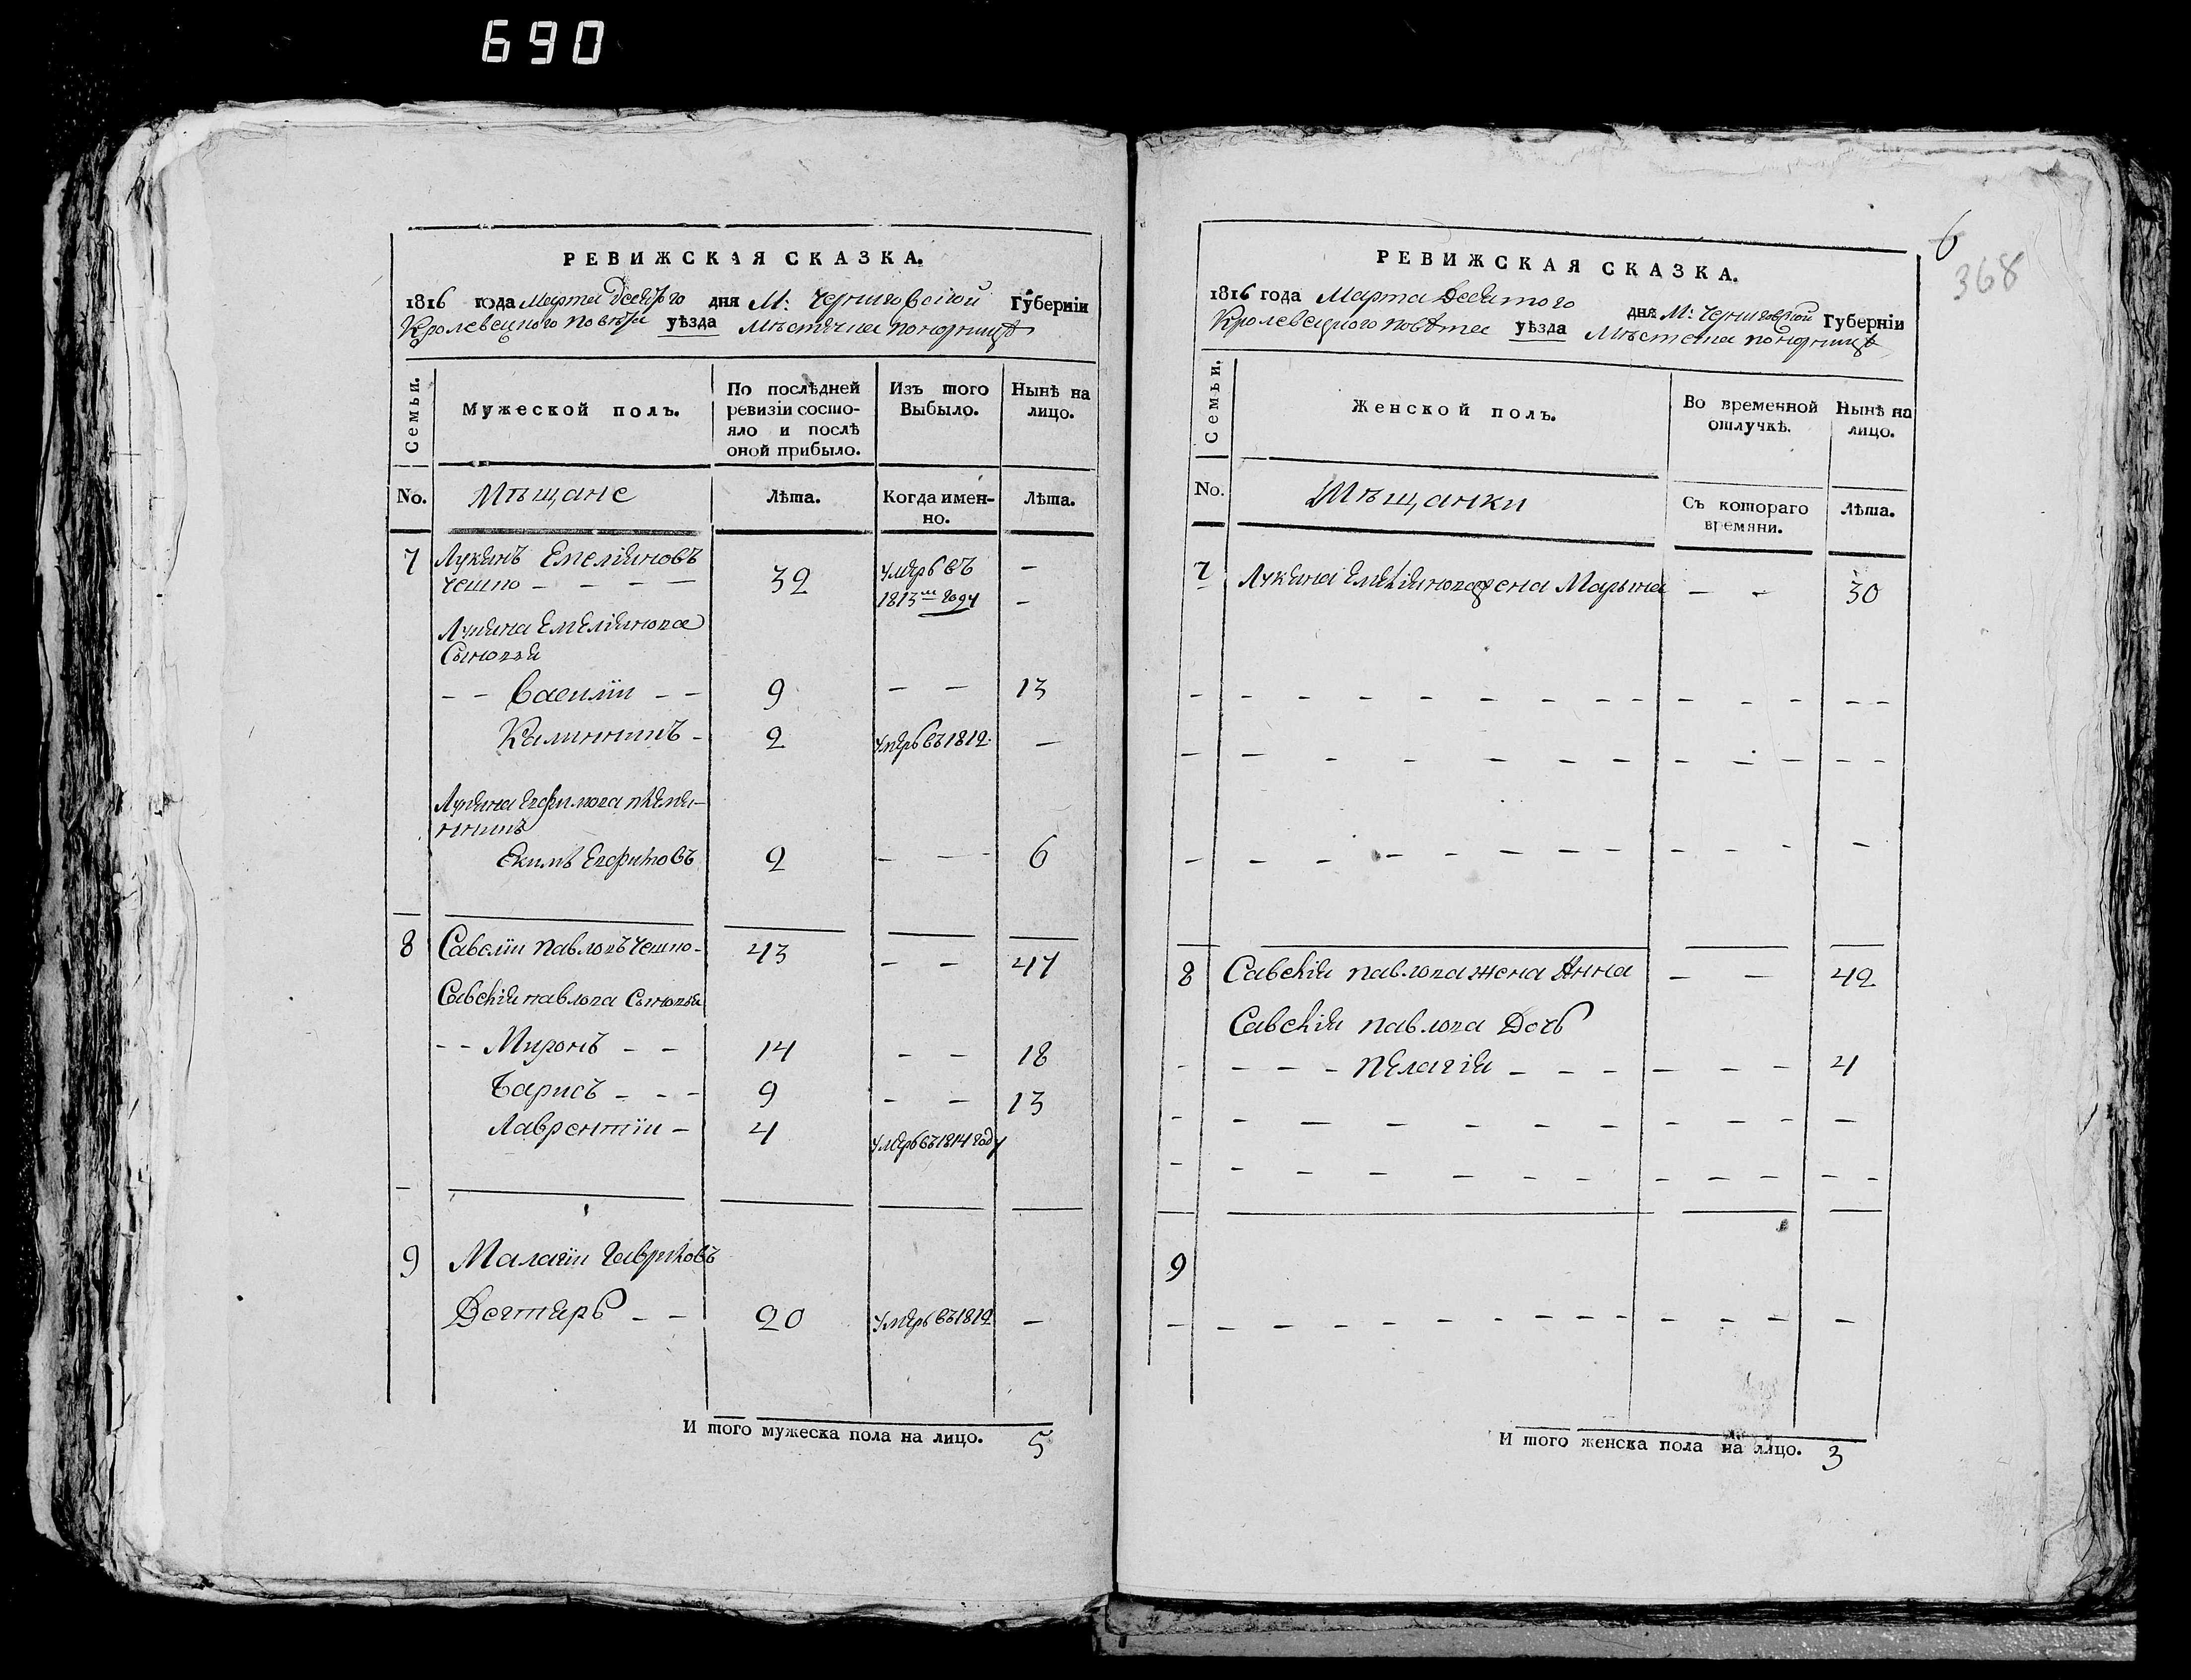 690
РЕВИЖСКАЯ СКАЗКА.
1816 года Марта десятого дня М: Черниговской Губерніи
Кролевецкого повета уѣзда Мѣстечка Понорницѣ
Семьи.
Мужеской полъ.
По послѣдней ревизіи состояло и послѣ оной прибыло.
Изъ того Выбыло.
Нынѣ на лицо.
No. Мѣщане Лѣта. Когда именно. Лѣта.
7 Лукянъ Емеліяновъ
32 умеръ въ –
1813м году –
Лукяна Емеліянова
Сыновья
– – Василіи – – 9 – – 13
2 умеръ въ 1812 –
Лукяна племя-
нникъ
Екимъ 2 – – 6
8 Савеліи Павловъ 43 – – 47
Савелія Павлова Сыновья
– – Миронъ – – 14 – – 18
Барисъ – – – 9 – – 13
Лаврентіи – 4 умеръ въ 1814 году
9 Малахіи Гавриловъ
Дегтяръ – – 20 умеръ въ 1812 –
И того мужеска пола на лицо. 5
6
368
РЕВИЖСКАЯ СКАЗКА.
1816 года Марта десятого дня М: Черниговской Губерніи
Кролевецкого повета уѣзда Мѣстечка Понорницѣ
Семьи.
Женской полъ.
Во временной отлучкѣ.
Нынѣ на лицо.
No. Мѣщанки Съ котораго времяни. Лѣта.
7 Лукяна Емеліянова жена Марына – – 30
8 Савелія Павлова жена Анна – – 42
Савелія Павлова Дочь
– – – – Пелагія – – – – – – 4
9
И того женска пола на лицо. 3